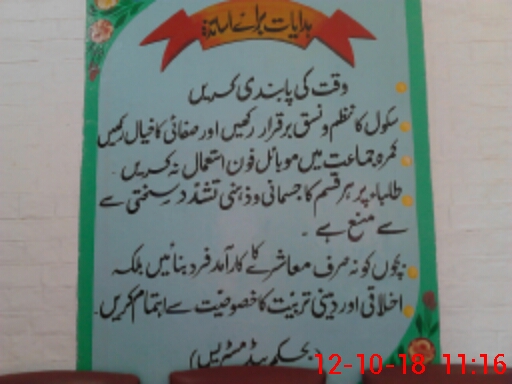 ہدایات برائے اساتذہ
وقت کی پابندی کریں
سکول کا نظم و نسق برقرار رکھیں اور صفائی کا خیال رکھیں
کمرہ جماعت میں موبائل فون استعمال نہ کریں۔
طلباء پر ہر قسم کا جسمانی و ذہنی تشدد سختی سے
سے منع ہے۔
بچوں کو نہ صرف معاشرے کا کارآمد فرد بنائیں بلکہ
اخلاقی اور دینی تربیت کا خصوصیت سے اہتمام کریں۔
(بحکم ہیڈ مسٹریس)
12-10-18 11:16